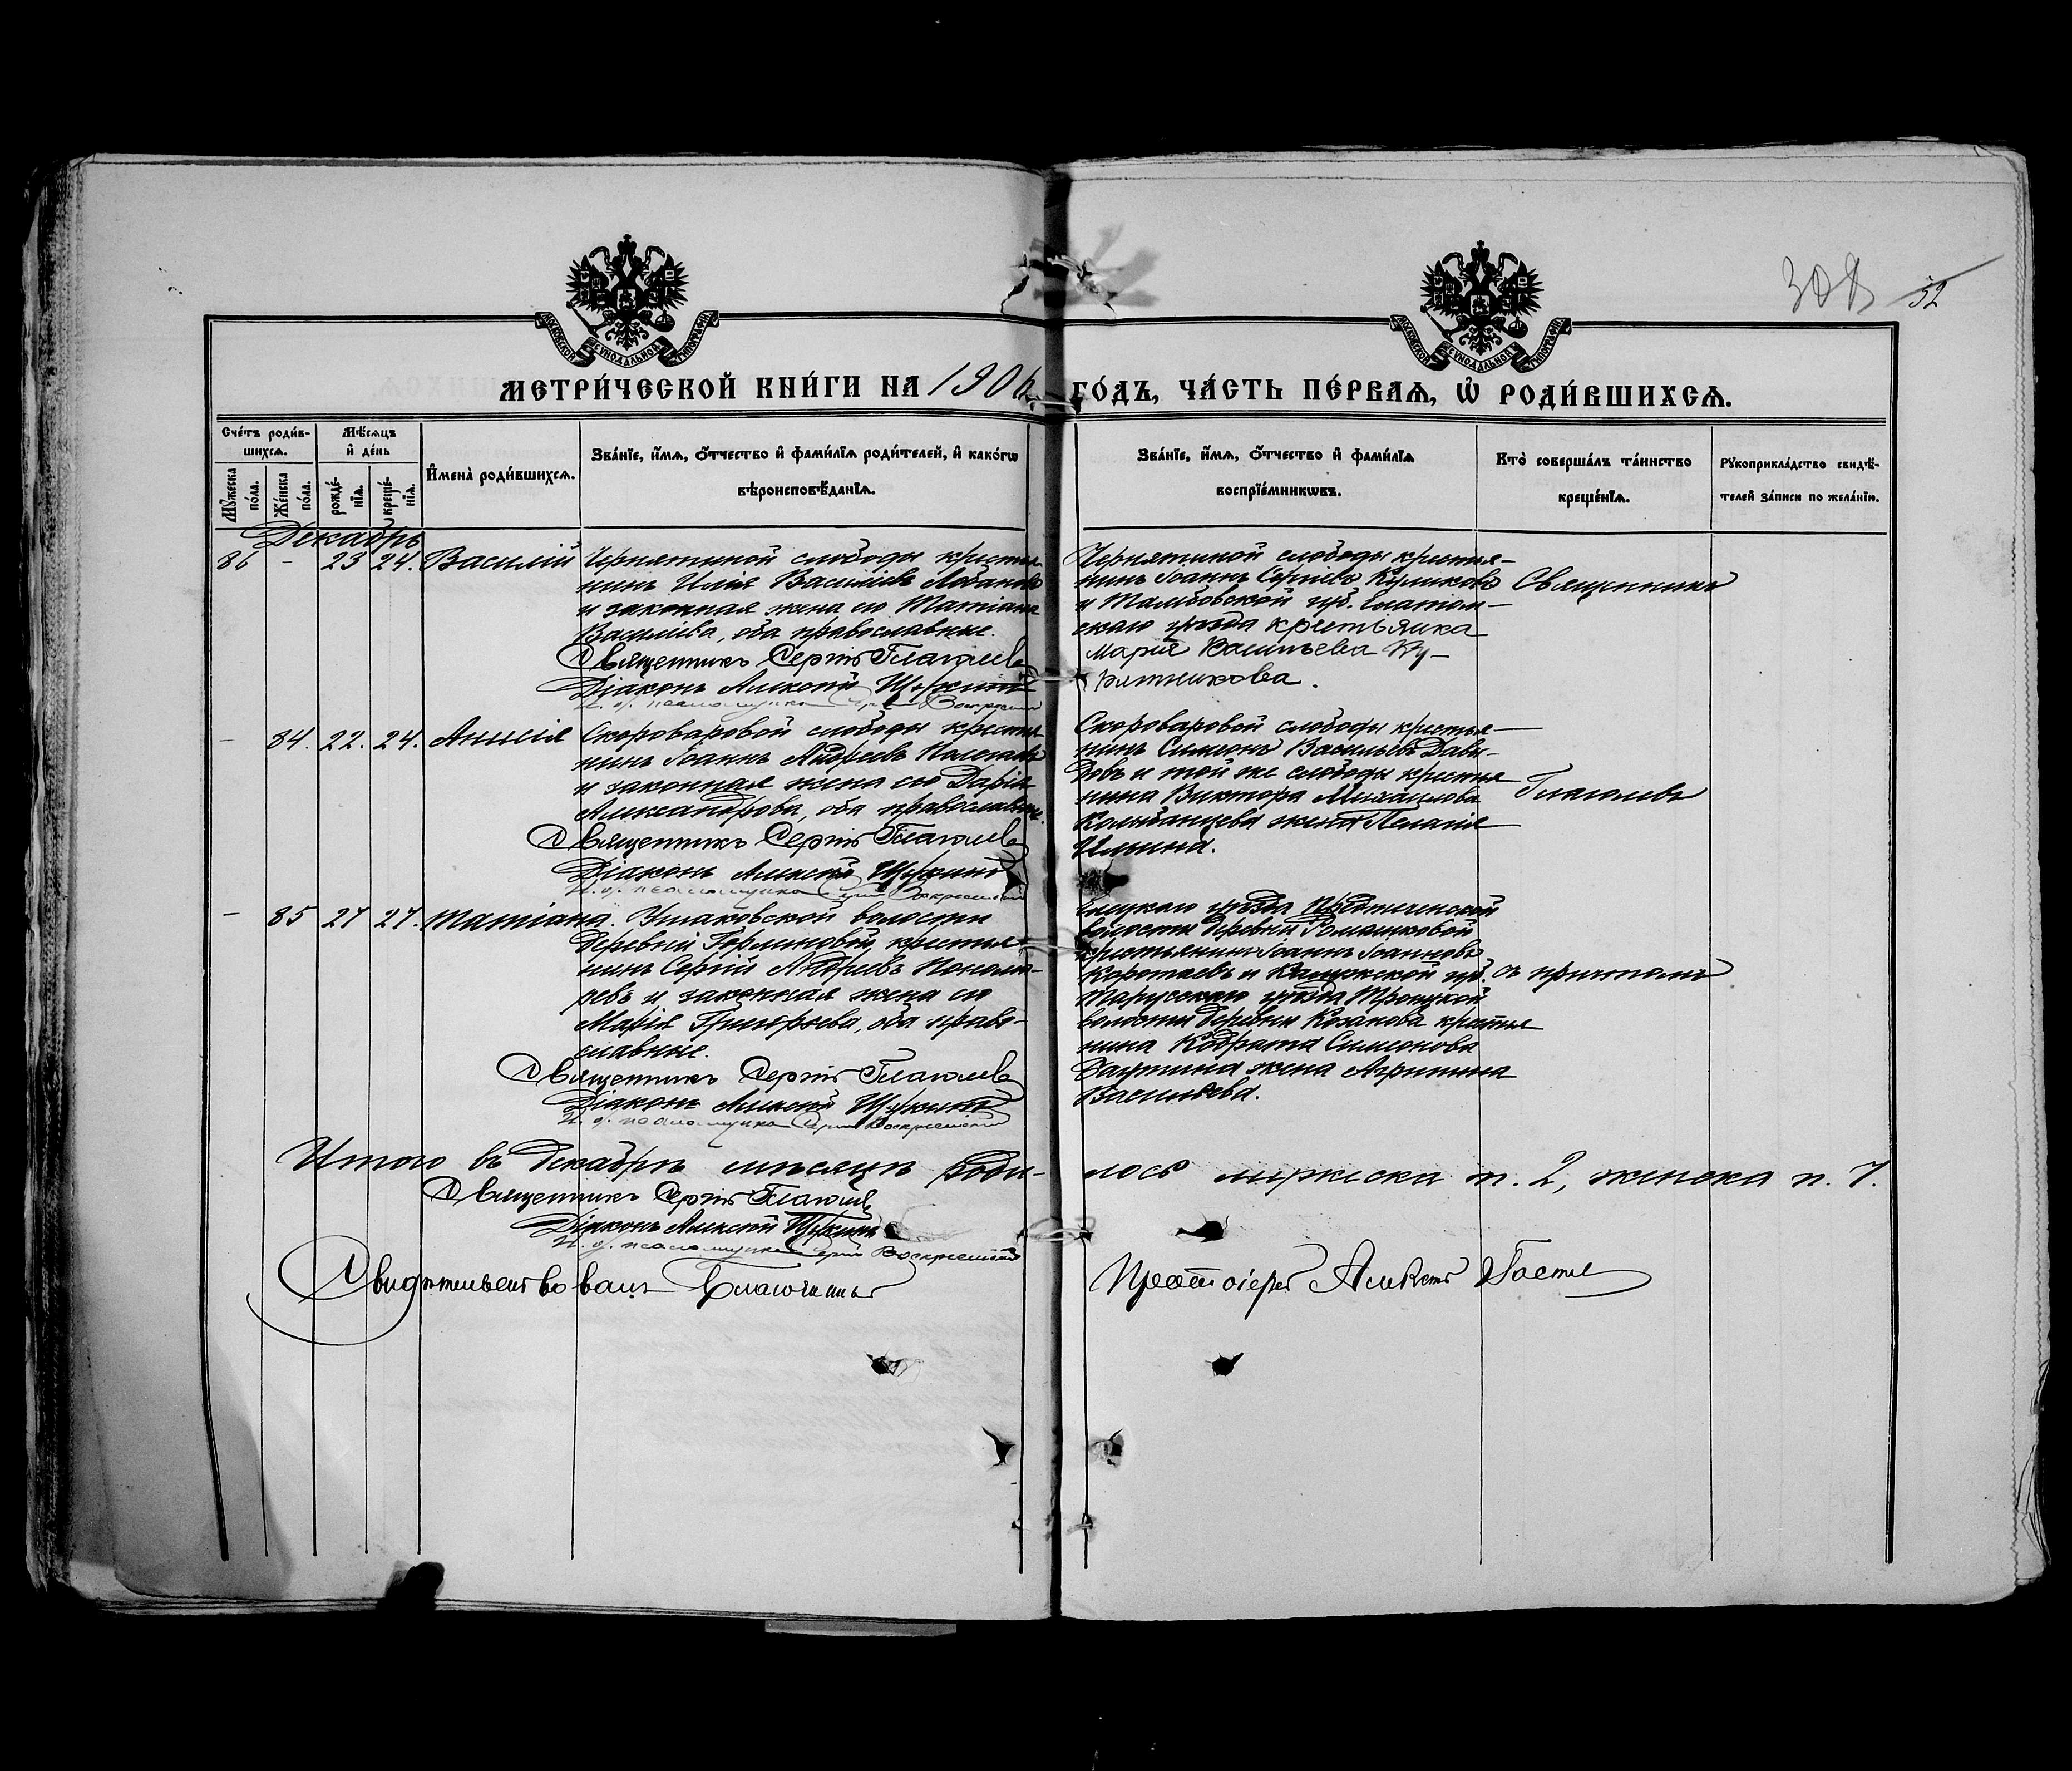 308 52
МОСКОВСКОЙ СѴНОДАЛЬНОЙ ТИПОГРАФІИ
МОСКОВСКОЙ СѴНОДАЛЬНОЙ ТИПОГРАФІИ
МЕТРИ́ЧЕСКОЙ КНИ́ГИ НА 1906 г.
ГО́ДЪ, ЧА́СТЬ ПЕ́РВАѦ, Ѡ҆ РОДИ́ВШИХСѦ.
Сче́тъ роди́в-
шихсѧ.
Мѣ́сѧцъ
и҆ де́нь
Мꙋ́жеска по́ла.
Же́нска по́ла.
рожде́-
нїѧ.
креще́-
нїѧ.
И҆мена̀ роди́вшихсѧ.
Зва́нїе, и҆́мѧ, ѻ҆́тчество и҆ фами́лїѧ роди́телей, и҆ како́гѡ
вѣроисповѣ́данїѧ.
Зва́нїе, и҆́мѧ, ѻ҆́тчество и҆ фами́лїѧ
воспрїе́мникѡвъ.
Кто̀ соверша́лъ та́инство
креще́нїѧ.
Рꙋкоприкла́дство свидѣ́-
телей за́писи по жела́нїю.
Декабрь
86 - 23 24. Василій
Чернятиной слободы крестья
нинъ Илія Василіевъ Лобановъ
и законная жена его Татіана
Василіева, оба православные.
Священникъ Сергій Глаголевъ
Діаконъ Алексій Щукинъ
И. д. псаломщика Сергій Воскресенскій
Чернятиной слободы крестья-
нинъ Іоаннъ Сергіевъ Куликовъ
и Тамбовской губ. Елатом-
скаго уѣзда крестьянка
Марія Васильева
Священникъ
- 84. 22. 24. Анисія
Скороваровой слободы крестья
нинъ Іоаннъ Андреевъ
и законная жена его Дарія
Александрова, оба православные.
Священникъ Сергій Глаголевъ
Діаконъ Алексій Щукинъ
И. д. псаломщика Сергій Воскресенскій
Скороваровой слободы крестья-
нинъ Симеонъ Васильевъ Давы-
довъ и той же слободы крестья
нина Виктора Михаилова
жена Пелагія
Ильина.
Глаголевъ
- 85 27 27. Татіана.
Ушаковской волости
деревни крестья
нинъ Сергій Андреевъ Понома-
ревъ и законная жена его
Марія Григорьева, оба право-
славные.
Священникъ Сергій Глаголевъ
Діаконъ Алексій Щукинъ
И. д. псаломщика Сергій Воскресенскій
Елецкаго уѣзда Предтеченской
волости деревни Ромашковой
крестьянинъ Іоаннъ Іоанновъ
Коротаевъ и Калужской губ.
Тарусскаго уѣзда Троицкой
волости деревни Казакова крестья
нина Кодрата Симеонова
жена Агриппина
Васильева.
съ причтомъ
Итого въ Декабрѣ мѣсяцѣ роди-
лось мужеска п. 2, женска п. 7.
Священникъ Сергій Глаголевъ
Діаконъ Алексій Щукинъ
И. д. псаломщика Сергій Воскресенскій
Свидѣтельствовалъ Благочинный
Протоіерей Алексій